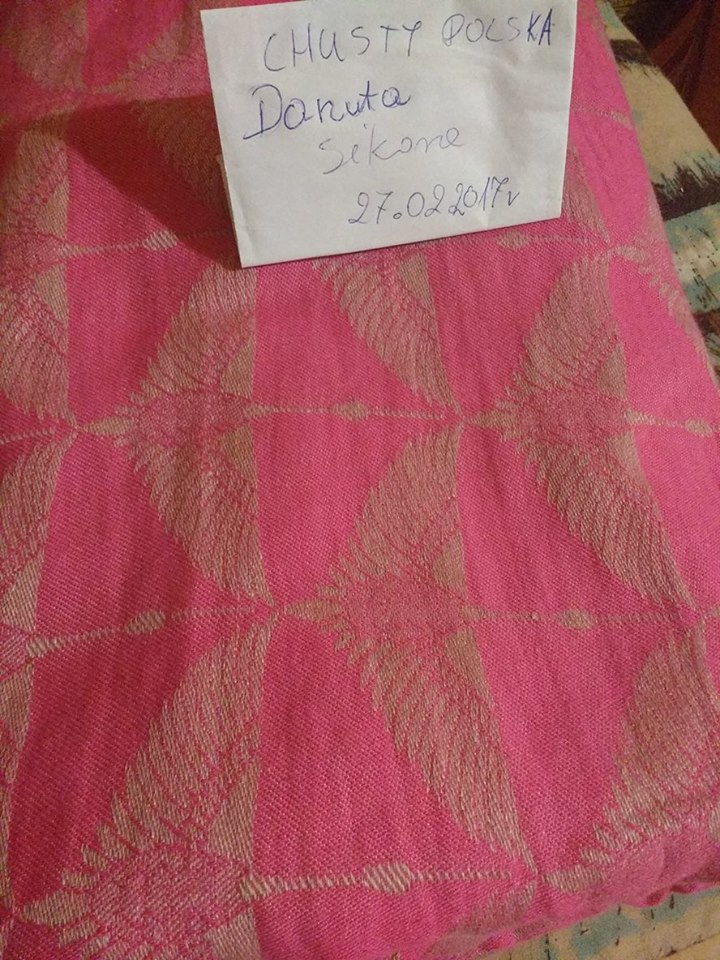 CHUSTY POLSKA
Danuta
Sikora
27.02.2017r